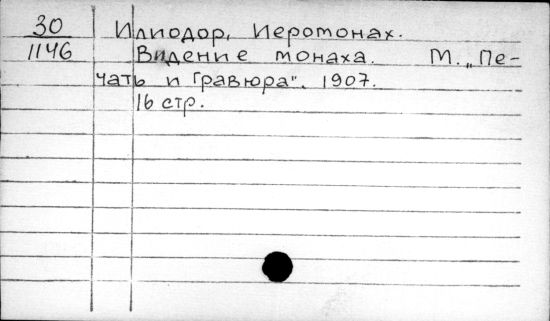 30 Илиодор, Иеромонах.
1146 Видение монаха. М. „Пе-
чать и Гравюра". 1907.
16 стр.